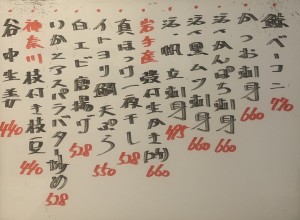 鯨ベーコン 770
かつお刺身 660
活〆かんぱち刺身 660
活〆黒ムツ刺身 660
活〆帆立刺身 495
岩手産 殻付生かき(2ヶ) 660
真ほっけ一夜干し 528
イトヨリ鯛天ぷら 550
白エビ唐揚げ 528
いかとアスパラバター炒め 528
神奈川 枝付き枝豆 440
谷中生姜 440